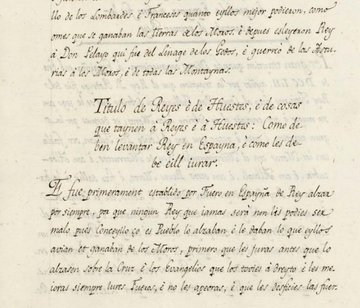 llo de los Lombardos è Franceses quanto eyllos mejor podieron, como
omes que se ganaban las tierras de los Moros. è depues esleyeron Rey
à Don Pelayo qui fue del Linage de los Godos, è guerreó de las Astu-
rias à los Moros, è de todas las Montaynas.
Titulo de Reyes è de Huestes, è de cosas
que taynen à Reyes è à Huestes: Como de-
ben levantar Rey en Espayna, è como les de-
be eill iurar.
E fue primerament establido por Fuero en Espayna de Rey alzar
por siempre, por que ningun Rey que iamas será non les podies ser
malo pues Conceyllo ço es Pueblo lo alzaban, è le daban lo que eyllos
avian et ganaban de los Moros, primero que les iuras antes que lo
alzasen sobre la Cruz è los Evangelios que los tovies à dreyto è les me-
ioras siempre lures Fueros, è no les apeoras, è que les desfizies las fuer-